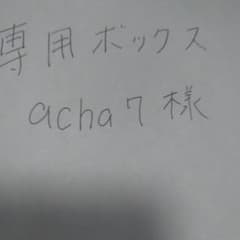 専用ボックス
acha7様